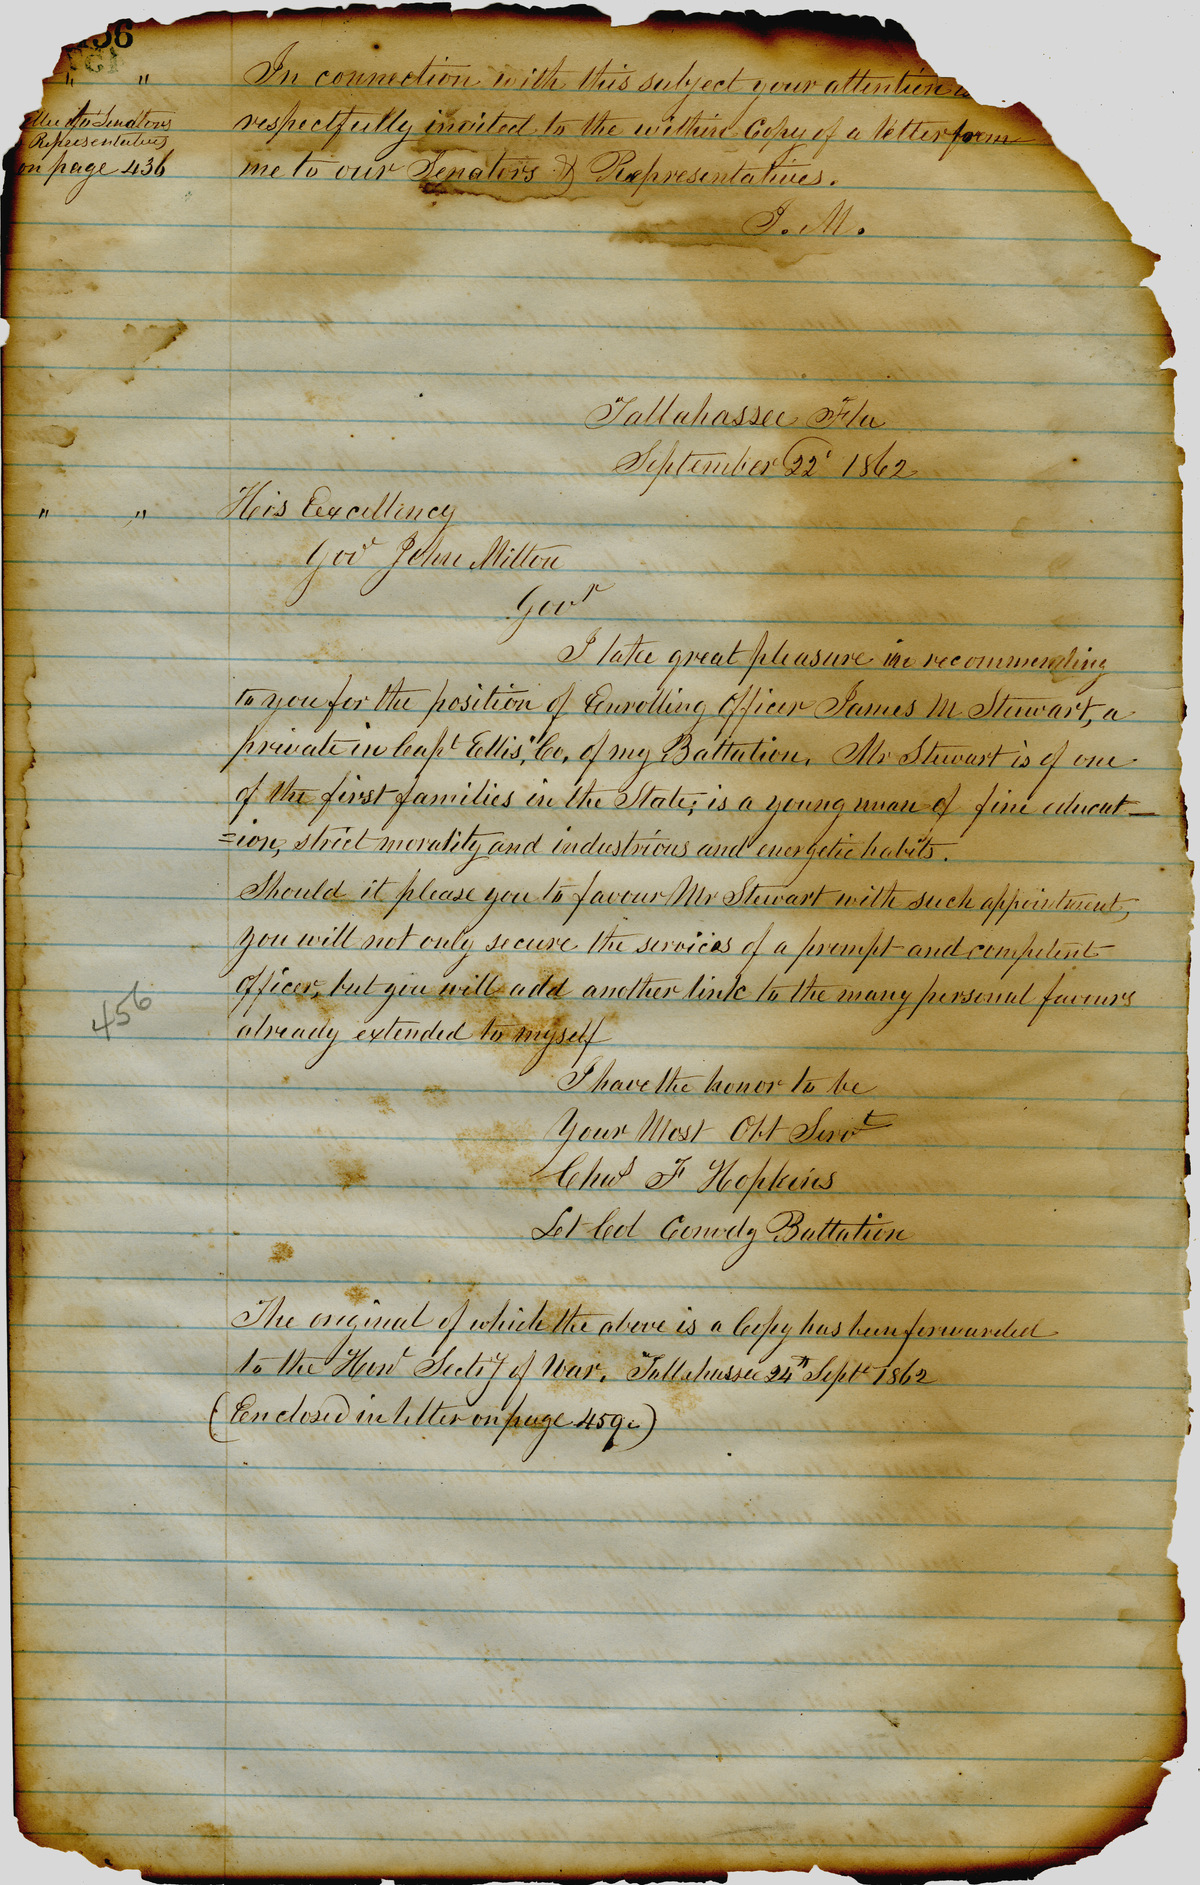 56
" "
In connection with this subject your attention is
respectfully invited to the within Copy of a letter from
me to our Senators & Representatives.
to Senators
Representatives
on page 436
J. M.
Tallahassee Fla
September 22' 1862
" "
His Excellency
Govr John Milton
Govr
I take great pleasure in recommending
to you for the position of Enrolling Officer James M Stewart, a
private in Capt Ellis' Co. of my Battalion. Mr Stewart is of one
of the first families in the State; is a young man of fine educat-
=ion, strict morality and industrious and energetic habits.
Should it please you to favour Mr Stewart with such appointment,
you will not only secure the services of a prompt and competent
Officer, but you will add another link to the many personal favours
already extended to myself
456
I have the honor to be
Your Most Obt Servt
Chas F Hopkins
Lt Col Comdg Battalion
The original of which the above is a Copy has been forwarded
to the Hon Secty of War. Tallahassee 24th Sept 1862
(Enclosed in letter on page 459.)